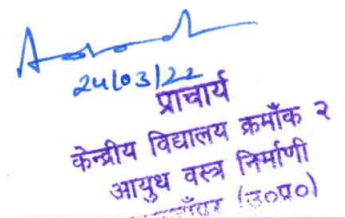 24/03/22
प्राचार्य
केन्द्रीय विद्यालय क्रमाँक २
आयुध वस्त्र निर्माणी
(उ०प्र०)